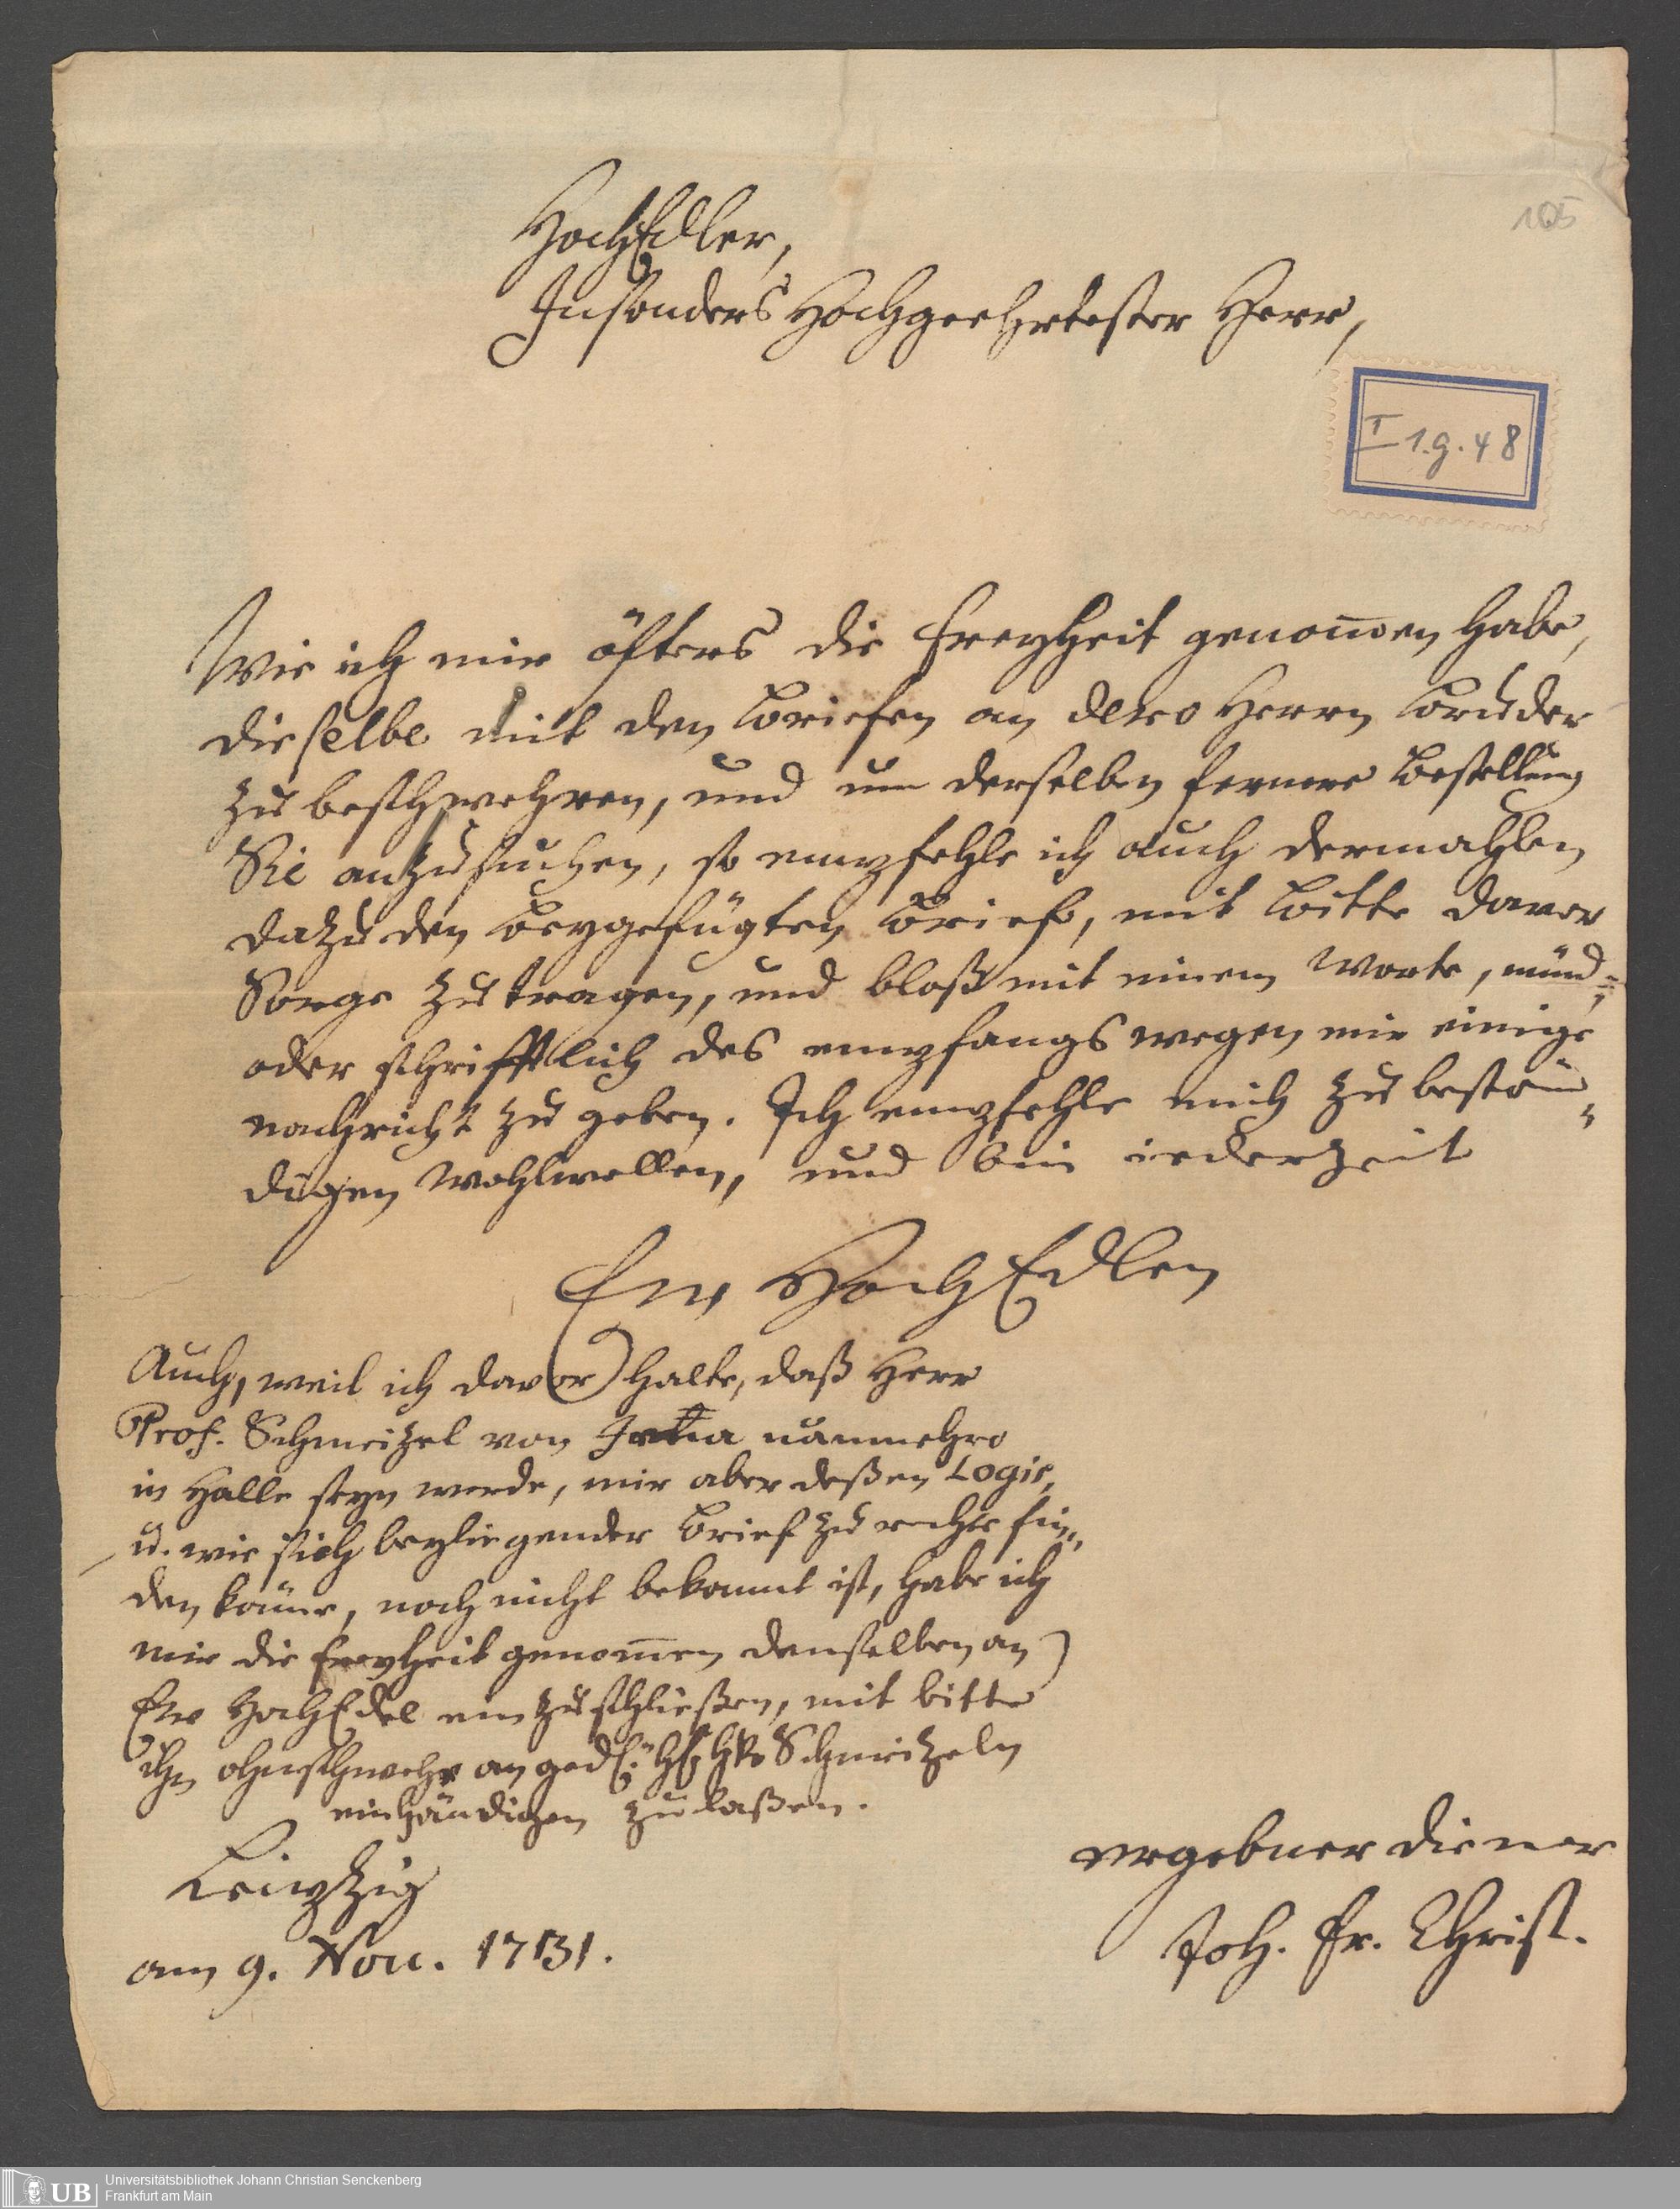 105
HochEdler,
Insonders Hochgeehrtester Herr,
I 1.g.48
Wie ich mir öfters die freyheit genom̅en habe,
dieselbe mit den Briefen an dero Herrn Bruder
zu beschwehren, und um derselben fernere Bestellung
Sie anzusuchen, so empfehle ich auch dermahlen
dazu den beygefügten Brief, mit Bitte davor
Sorge zu tragen, und bloß mit einem Worte, münd=
oder schrifftlich des empfangs wegen mir einige
nachricht zu geben. Ich empfehle mich zu bestän-
digen Wohlwollen, und bin iederzeit
Ew. HochEdlen
Auch, weil ich davor halte, daß Herr
Prof. Schmeizel von Jena nunmehro
in Halle seyn werde, mir aber deßen Logis,
u. wie sich beyliegender Brief zu rechte fin-
den könne, noch nicht bekannt ist, habe ich
mir die freyheit genom̅en denselben an
Ew HochEdel einzuschließen, mit bitte
ihn ohnschwehr an Schmeizeln
einhändigen zu laßen.
Leipzig
am 9. Nov. 1731.
ergebner diener
Joh. Fr. Christ.
UB
Universitätsbibliothek Johann Christian Senckenberg
Frankfurt am Main